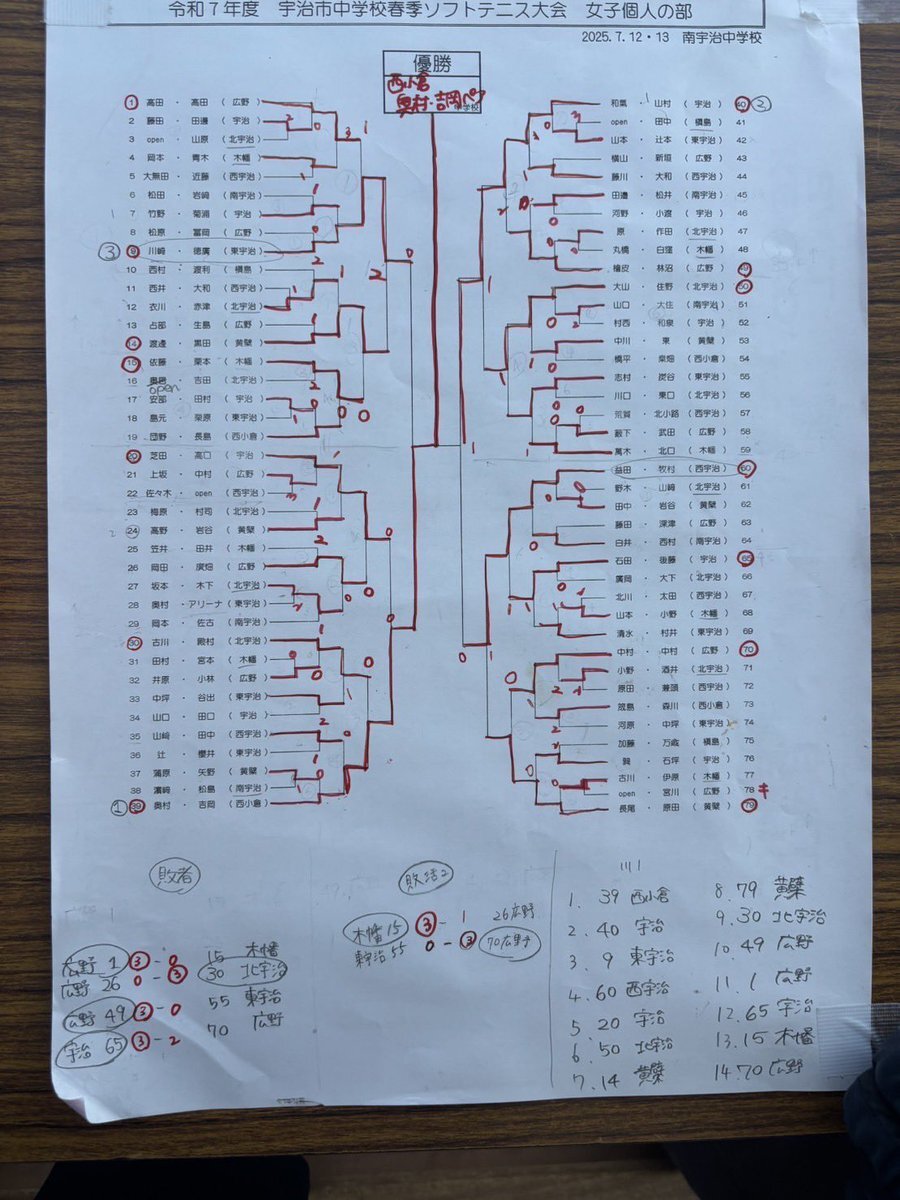 令和７年度　宇治市中学校春季ソフトテニス大会　女子個人の部
2025.7.12・13　南宇治中学校
優勝
西小倉
奥村・吉岡ペア
中学校
1 高田 ・ 高田 ( 広野 )
2 藤田 ・ 田邉 ( 宇治 )
3 open ・ 山原 ( 北宇治 )
4 岡本 ・ 青木 ( 木幡 )
5 大無田 ・ 近藤 ( 西宇治 )
6 松田 ・ 岩﨑 ( 南宇治 )
7 竹野 ・ 菊浦 ( 宇治 )
8 松原 ・ 冨岡 ( 広野 )
③ 9 川崎 ・ 徳廣 ( 東宇治 )
10 西村 ・ 渡利 ( 槇島 )
11 西井 ・ 大和 ( 西宇治 )
12 衣川 ・ 赤津 ( 北宇治 )
13 占部 ・ 生島 ( 広野 )
14 渡邊 ・ 黒田 ( 黄檗 )
15 依藤 ・ 栗本 ( 木幡 )
16 ・ 吉田 ( 北宇治 )
open
17 安部 ・ 田村 ( 宇治 )
18 島元 ・ 栗原 ( 東宇治 )
19 団野 ・ 長島 ( 西小倉 )
20 芝田 ・ 高口 ( 宇治 )
21 上坂 ・ 中村 ( 広野 )
22 佐々木 ・ open ( 西宇治 )
23 梅原 ・ 村司 ( 北宇治 )
24 高野 ・ 岩谷 ( 黄檗 )
25 笠井 ・ 田井 ( 木幡 )
26 岡田 ・ 廣畑 ( 広野 )
27 坂本 ・ 木下 ( 北宇治 )
28 奥村 ・ アリーナ ( 東宇治 )
29 岡本 ・ 佐古 ( 南宇治 )
30 古川 ・ 殿村 ( 北宇治 )
31 田村 ・ 宮本 ( 木幡 )
32 井原 ・ 小林 ( 広野 )
33 中坪 ・ 谷出 ( 東宇治 )
34 山口 ・ 田口 ( 宇治 )
35 山﨑 ・ 田中 ( 西宇治 )
36 辻 ・ 櫻井 ( 東宇治 )
37 蒲原 ・ 矢野 ( 黄檗 )
38 濱﨑 ・ 松島 ( 南宇治 )
① 39 奥村 ・ 吉岡 ( 西小倉 )
和氣 ・ 山村 ( 宇治 ) 40 ③
open ・ 田中 ( 槇島 ) 41
山本 ・ 辻本 ( 東宇治 ) 42
横山 ・ 新垣 ( 広野 ) 43
藤川 ・ 大和 ( 西宇治 ) 44
田邉 ・ 松井 ( 南宇治 ) 45
河野 ・ 小渡 ( 宇治 ) 46
原 ・ 作田 ( 北宇治 ) 47
丸橋 ・ 白窪 ( 木幡 ) 48
檜皮 ・ 林沼 ( 広野 ) 49
大山 ・ 住野 ( 北宇治 ) 50
山口 ・ 大住 ( 南宇治 ) 51
村西 ・ 和泉 ( 宇治 ) 52
中川 ・ 東 ( 黄檗 ) 53
橋平 ・ 柴畑 ( 西小倉 ) 54
志村 ・ 炭谷 ( 東宇治 ) 55
川口 ・ 東口 ( 北宇治 ) 56
荒賀 ・ 北小路 ( 西宇治 ) 57
薮下 ・ 武田 ( 広野 ) 58
萬木 ・ 北口 ( 木幡 ) 59
益田 ・ 牧村 ( 西宇治 ) 60
野木 ・ 山﨑 ( 北宇治 ) 61
田中 ・ 岩谷 ( 黄檗 ) 62
藤田 ・ 深津 ( 広野 ) 63
白井 ・ 西村 ( 南宇治 ) 64
石田 ・ 後藤 ( 宇治 ) 65
廣岡 ・ 大下 ( 北宇治 ) 66
北川 ・ 太田 ( 西宇治 ) 67
山本 ・ 小野 ( 木幡 ) 68
清水 ・ 村井 ( 東宇治 ) 69
中村 ・ 中村 ( 広野 ) 70
小野 ・ 酒井 ( 北宇治 ) 71
原田 ・ 兼頭 ( 西宇治 ) 72
筬島 ・ 森川 ( 西小倉 ) 73
河原 ・ 中坪 ( 東宇治 ) 74
加藤 ・ 万歳 ( 槇島 ) 75
巽 ・ 石坪 ( 宇治 ) 76
古川 ・ 伊原 ( 木幡 ) 77
open ・ 宮川 ( 広野 ) 78 キ
長尾 ・ 原田 ( 黄檗 ) 79
敗者
広野 1 ③ - 0 15 木幡
広野 26 0 - ③ 30 北宇治
広野 49 ③ - 0 55 東宇治
宇治 65 ③ - 2 70 広野
敗者2
木幡 15 ③ - 1 26 広野
東宇治 55 0 - ③ 70 広野
1. 39 西小倉
2. 40 宇治
3. 9 東宇治
4. 60 西宇治
5 20 宇治
6. 50 北宇治
7. 14 黄檗
8. 79 黄檗
9. 30 北宇治
10. 49 広野
11. 1 広野
12. 65 宇治
13. 15 木幡
14. 70 広野